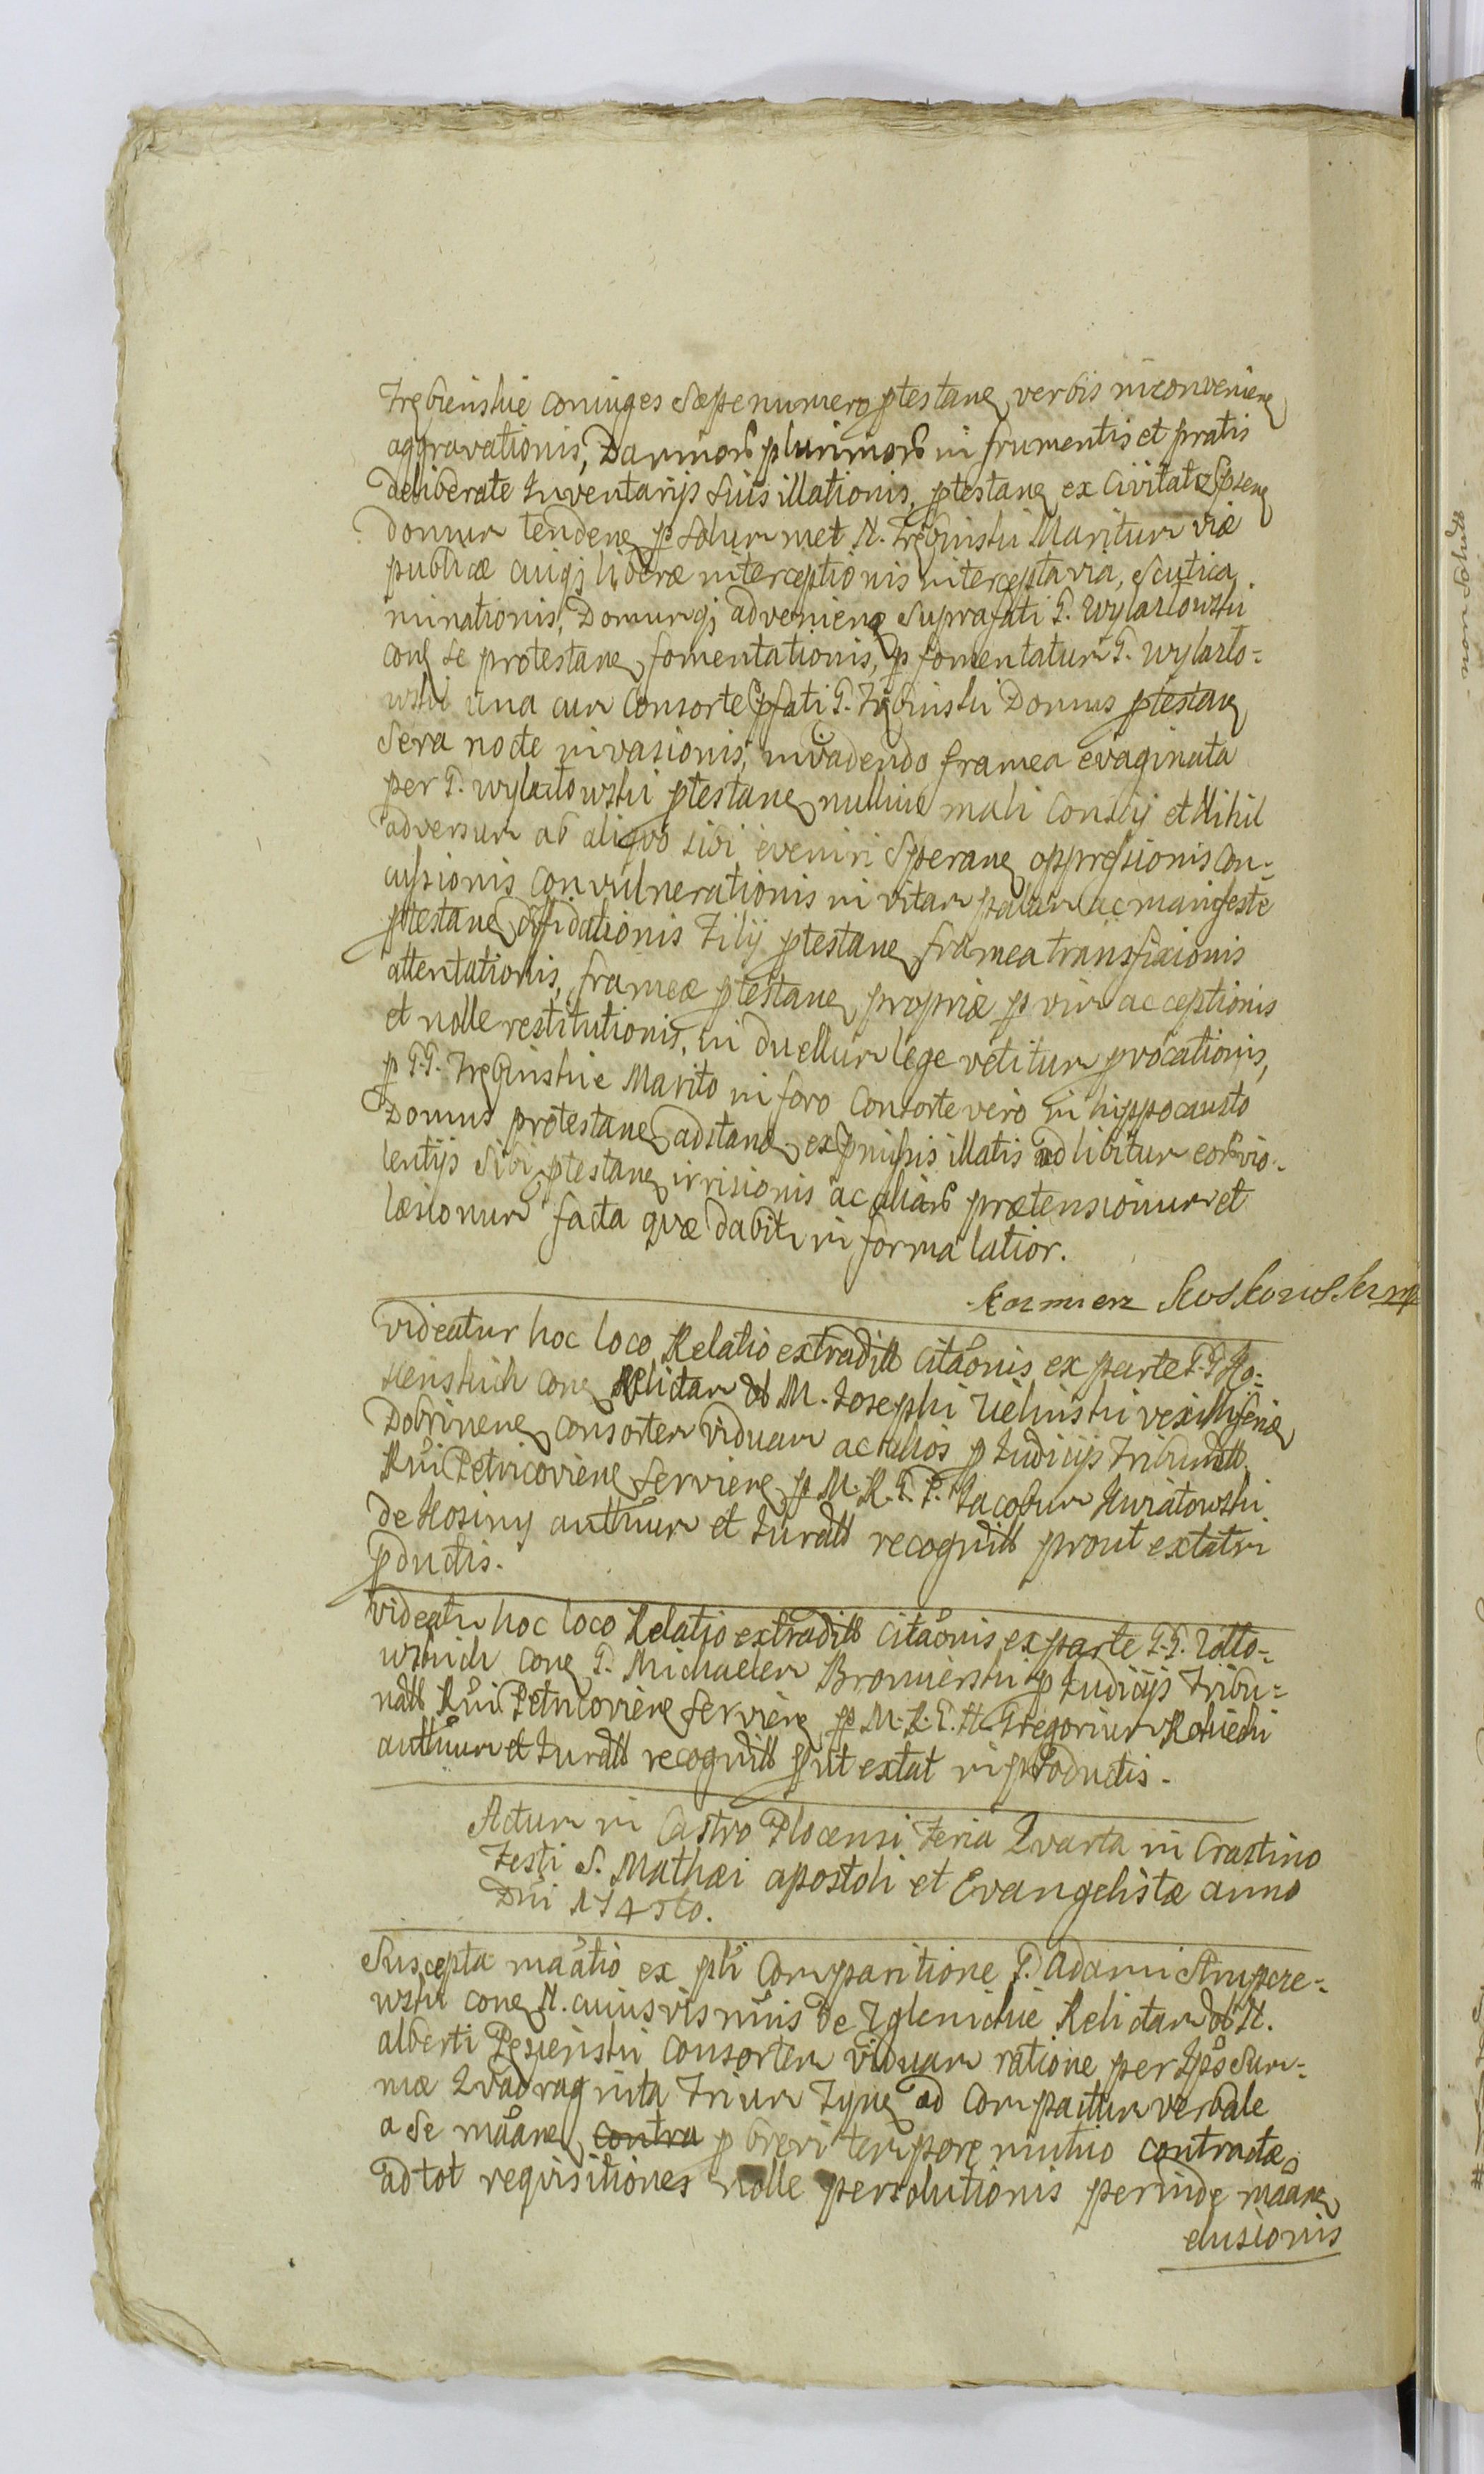 Trębienskie coniuges sæpenumero ptestane verbis inconveniene
aggravationis, Damnorꝫ plurimorꝫ in frumentis et pratis
deliberate Inventarijs suis illationis, ptestane ex Civitate Spsene
domum tendene p solum met N. Trębinski Maritum viæ
publicæ cuiqz liberæ interceptionis intercepta via, scutica
minationis, Domumqz adveniene Suprafati G. Wylazłowski
cone se protestane fomentationis, p fomentatum G. Wylazło=
wski una cum Consorte pfati G. Trębinski Domus ptestane
sera nocte invasionis, invadendo framea evaginata
per G. Wylazłowski ptestane nullius mali Conscij et Nihil
adversum ab aliqvo sibi eveniri Sperane oppressionis con=
cussionis convulnerationis in vitam palam ac manifeste
ptestane diffidationis Filij ptestane framea transfixionis
attentationis, frameæ ptestane propriæ p vim acceptionis
et nolle restitutionis, in duellum lege vetitum pvocationis,
p G.G. Trębinskie Marito in foro Consorte vero in hippocausto
Domus protestane adstane ex pmissis illatis ad libitum eorꝫ vio=
lentijs sibi ptestane irrisionis ac aliarꝫ prætensionum et
læsionum facta qvæ dabitr in forma latior.
Kazmierz Koskowski mp
Videatur hoc loco Relatio extradittꝫ citãonis ex parte G.G. Ko=
cone Relictam ol M. Josephi Zielinski vexilliferiæ
Dobrinene consortem viduam ac alios p Judicijs Tribunattꝫ
Rñi Petricoviene serviene p M. R. G. P. Jacobum Kuratowski
de Kosiny authum et Jurattꝫ recognittꝫ prout extat in
pductis.
Videatr hoc loco Relatio extradittꝫ citãonis ex parte G.G. Zółto=
wskich cone G. Michaelem Bromierski p Judicijs Tribu=
nattꝫ Rñi Petricoviene serviene p M. R. G. H. Gregorium Rokicki
authum et Jurattꝫ recognittꝫ put extat in productis.
Actum in Castro Plocensi Feria Qvarta in Crastino
Festi S. Mathæi apostoli et Evangelistæ anno
Dni 1745to.
Suscepta mãatio ex pti Comparitione G. Adami Strupcze=
wski cone N. cuiusvis nñis de Zglenickie Relictam ol N.
alberti Peszenski consortem viduam ratione per Ipsos Sum=
mæ Qvadraginta Trium Tyne ad Compactum verbale
a se mãane contra p brevi tempore mutuo contractæ
ad tot reqvisitiones nolle persolutionis perinde mãane
elusionis
non soluto